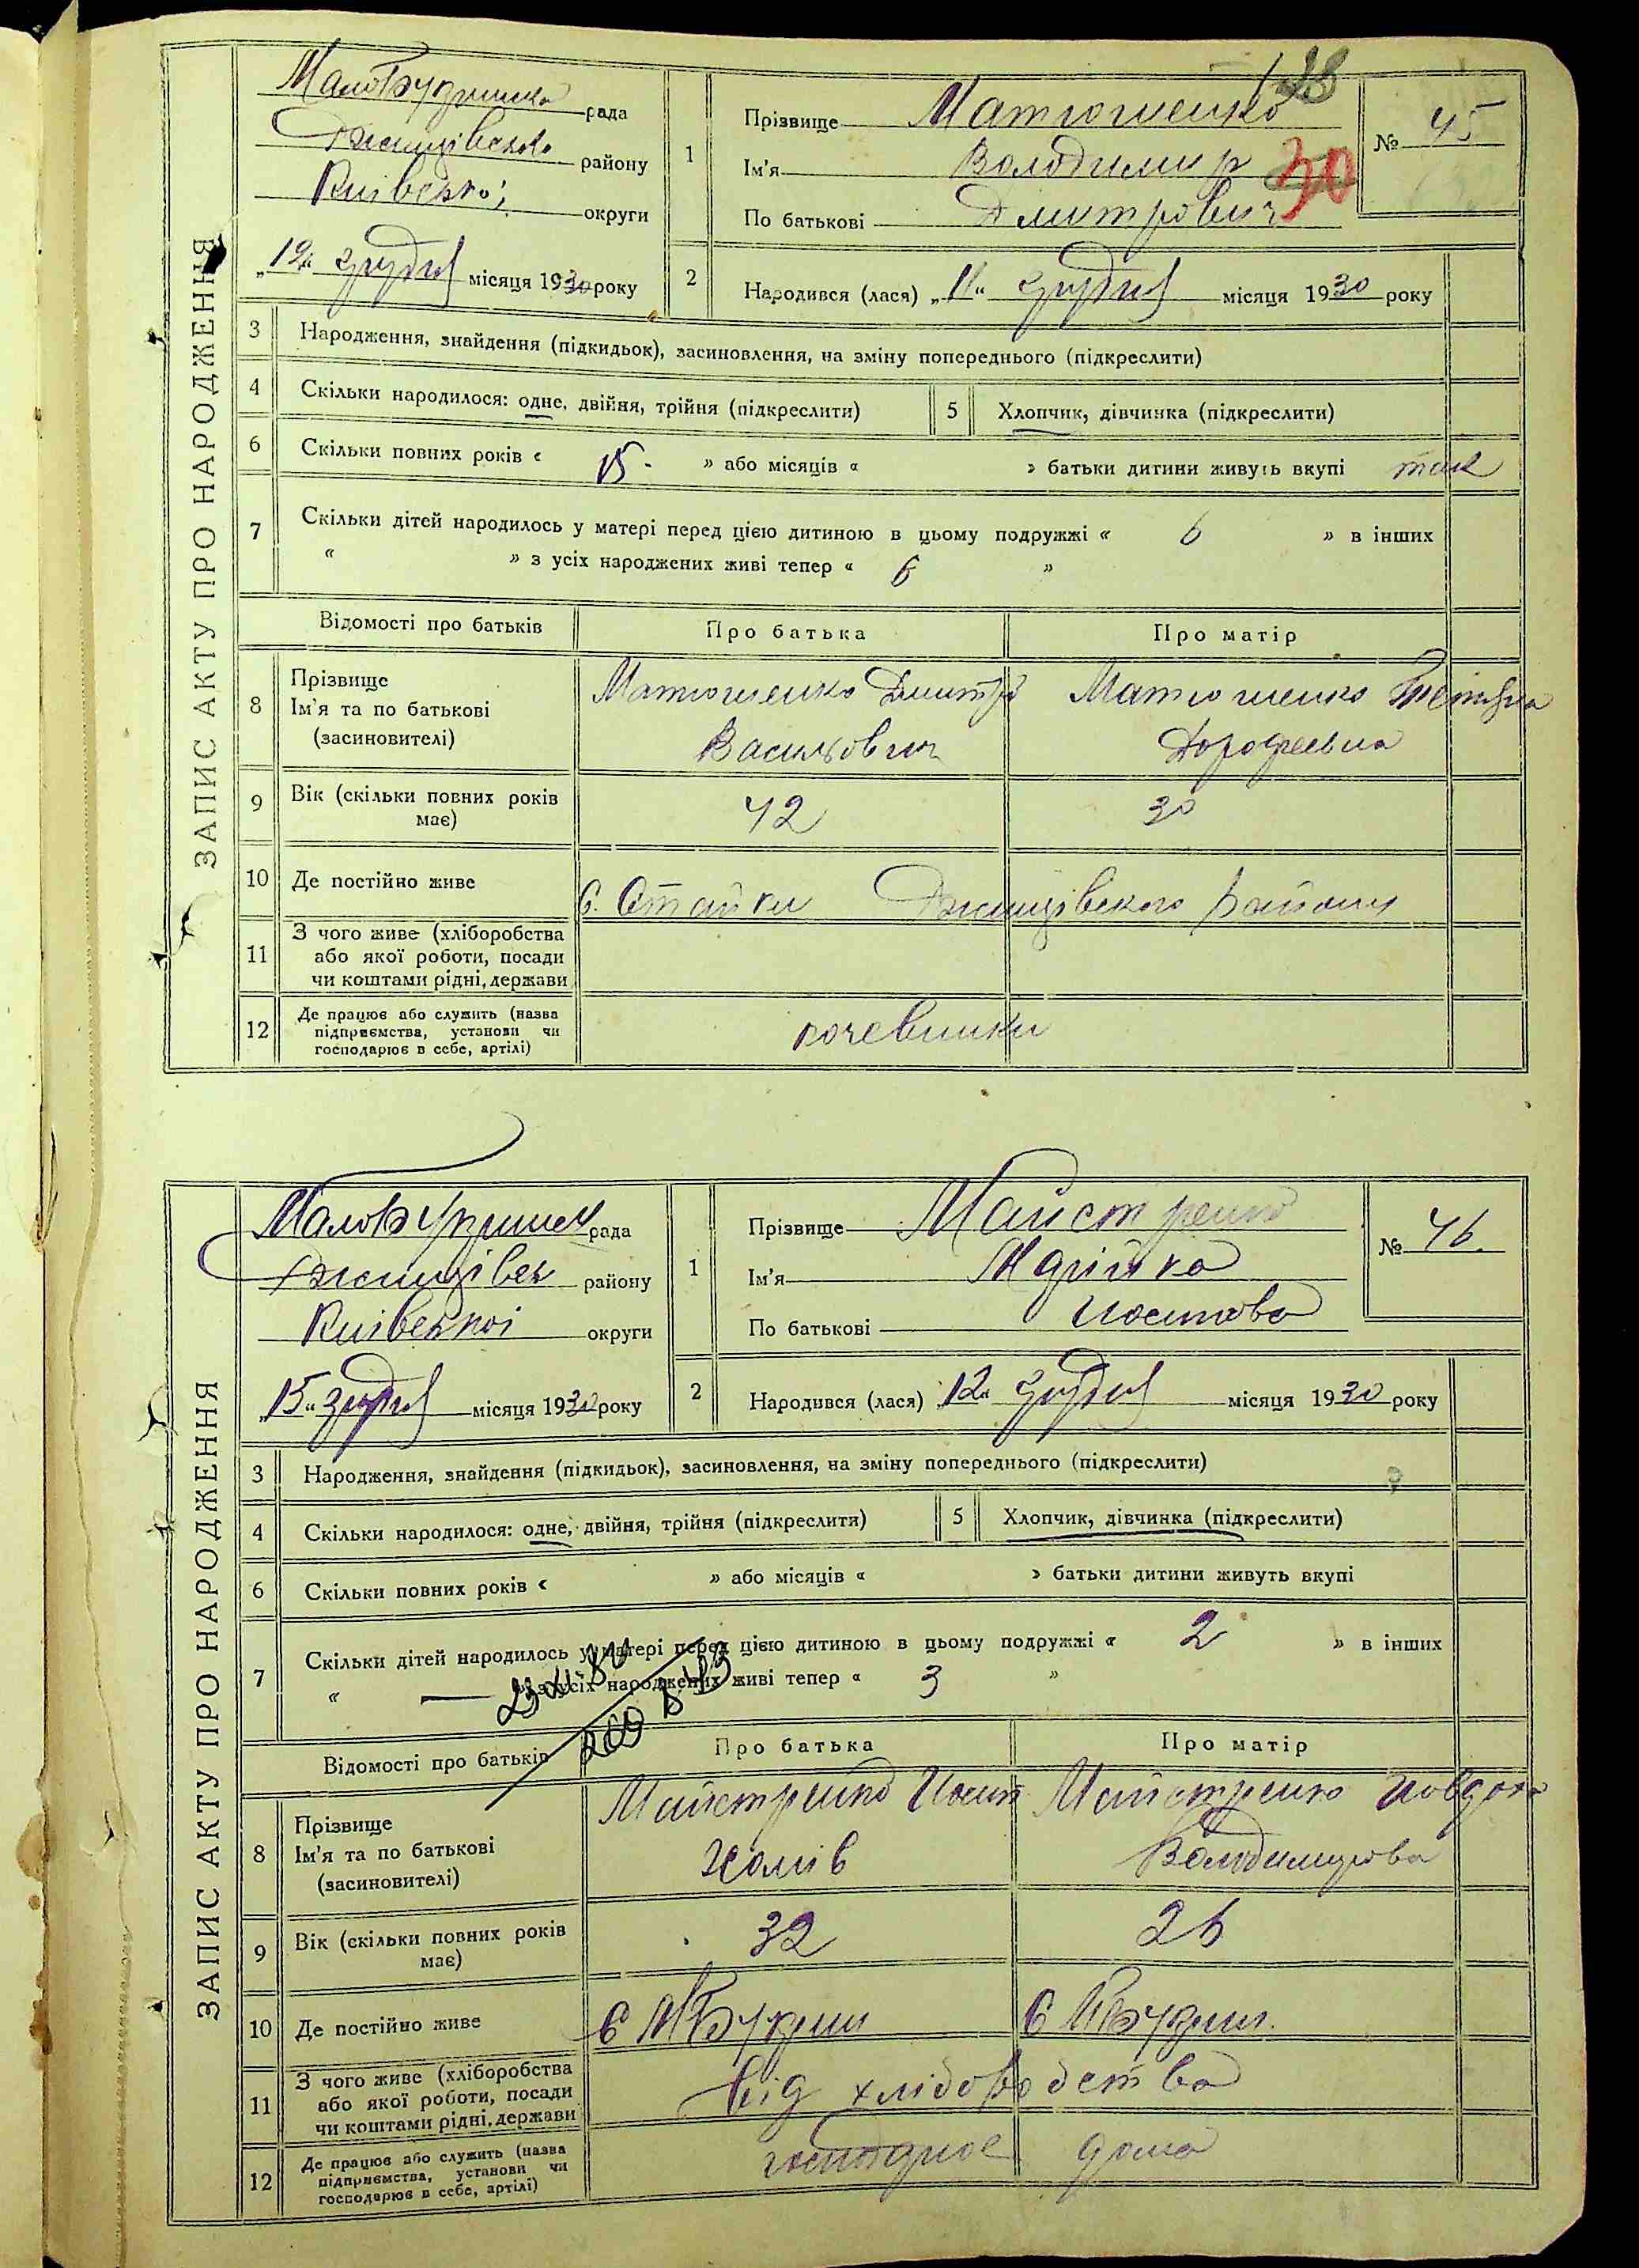 ЗАПИС АКТУ ПРО НАРОДЖЕННЯ
МалоБукринська рада
Ржищівського району
Київської округи
„12“ грудня місяця 1930 року
1 Прізвище Матюшенко
Ім'я Володимир
По батькові Дмитрович
30
№ 45
2 Народився (лася) „11“ грудня місяця 1930 року
3 Народження, знайдення (підкидьок), засиновлення, на зміну попереднього (підкреслити)
4 Скільки народилося: одне, двійня, трійня (підкреслити) 5 Хлопчик, дівчинка (підкреслити)
6 Скільки повних років « 15 » або місяців « » батьки дитини живуть вкупі так
7 Скільки дітей народилось у матері перед цією дитиною в цьому подружжі « 6 » в інших
« » з усіх народжених живі тепер « 6 »
Відомості про батьків Про батька Про матір
8 Прізвище
Ім'я та по батькові
(засиновителі)
Матюшенко Дмитро
Васильович
Матюшенко Тетяна
Дорофеевна
9 Вік (скільки повних років має) 42 30
10 Де постійно живе с. Стайки Ржищівського району
11 З чого живе (хліборобства
або якої роботи, посади
чи коштами рідні, держави
12 Де працює або служить (назва
підприємства, установи чи
господарює в себе, артілі)
кочевники
ЗАПИС АКТУ ПРО НАРОДЖЕННЯ
МалоБукринськ рада
Ржищівськ району
Київської округи
„15“ грудня місяця 1930 року
1 Прізвище Майстренко
Ім'я Марійка
По батькові Йосипова
№ 46.
2 Народився (лася) „12“ грудня місяця 1930 року
3 Народження, знайдення (підкидьок), засиновлення, на зміну попереднього (підкреслити)
4 Скільки народилося: одне, двійня, трійня (підкреслити) 5 Хлопчик, дівчинка (підкреслити)
6 Скільки повних років « » або місяців « » батьки дитини живуть вкупі
7 Скільки дітей народилось у матері перед цією дитиною в цьому подружжі « 2 » в інших
« — » з усіх народжених живі тепер « 3 »
Відомості про батьків Про батька Про матір
8 Прізвище
Ім'я та по батькові
(засиновителі)
Майстренко Йосип
Хомів
Майстренко Йовдоха
Володимирова
9 Вік (скільки повних років має) 32 26
10 Де постійно живе С МБукрин С МБукрин.
11 З чого живе (хліборобства
або якої роботи, посади
чи коштами рідні, держави
від хлібоводства
12 Де працює або служить (назва
підприємства, установи чи
господарює в себе, артілі)
господрює дома